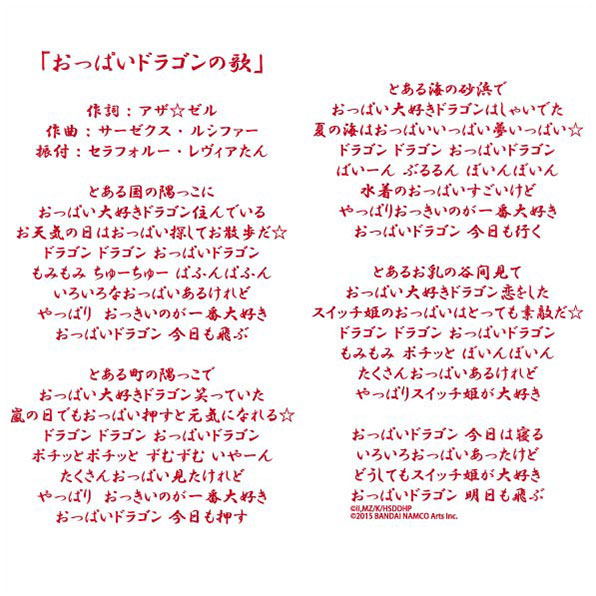 「おっぱいドラゴンの歌」
作詞：アザ☆ゼル
作曲：サーゼクス・ルシファー
振付：セラフォルー・レヴィアたん
とある国の隅っこに
おっぱい大好きドラゴン住んでいる
お天気の日はおっぱい探してお散歩だ☆
ドラゴン ドラゴン おっぱいドラゴン
もみもみ ちゅーちゅー ぱふんぱふん
いろいろなおっぱいあるけれど
やっぱり おっきいのが一番大好き
おっぱいドラゴン 今日も飛ぶ
とある町の隅っこで
おっぱい大好きドラゴン笑っていた
嵐の日でもおっぱい押すと元気になれる☆
ドラゴン ドラゴン おっぱいドラゴン
ポチッとポチッと ずむずむ いやーん
たくさんおっぱい見たけれど
やっぱり おっきいのが一番大好き
おっぱいドラゴン 今日も押す
とある海の砂浜で
おっぱい大好きドラゴンはしゃいでた
夏の海はおっぱいいっぱい夢いっぱい☆
ドラゴン ドラゴン おっぱいドラゴン
ばいーん ぶるるん ぼいんぼいん
水着のおっぱいすごいけど
やっぱりおっきいのが一番大好き
おっぱいドラゴン 今日も行く
とあるお乳の谷間見て
おっぱい大好きドラゴン恋をした
スイッチ姫のおっぱいはとっても素敵だ☆
ドラゴン ドラゴン おっぱいドラゴン
もみもみ ポチッと ばいんばいん
たくさんおっぱいあるけれど
やっぱりスイッチ姫が大好き
おっぱいドラゴン 今日は寝る
いろいろおっぱいあったけど
どうしてもスイッチ姫が大好き
おっぱいドラゴン 明日も飛ぶ
©II,MZ/K/HSDDHP
©2015 BANDAI NAMCO Arts Inc.